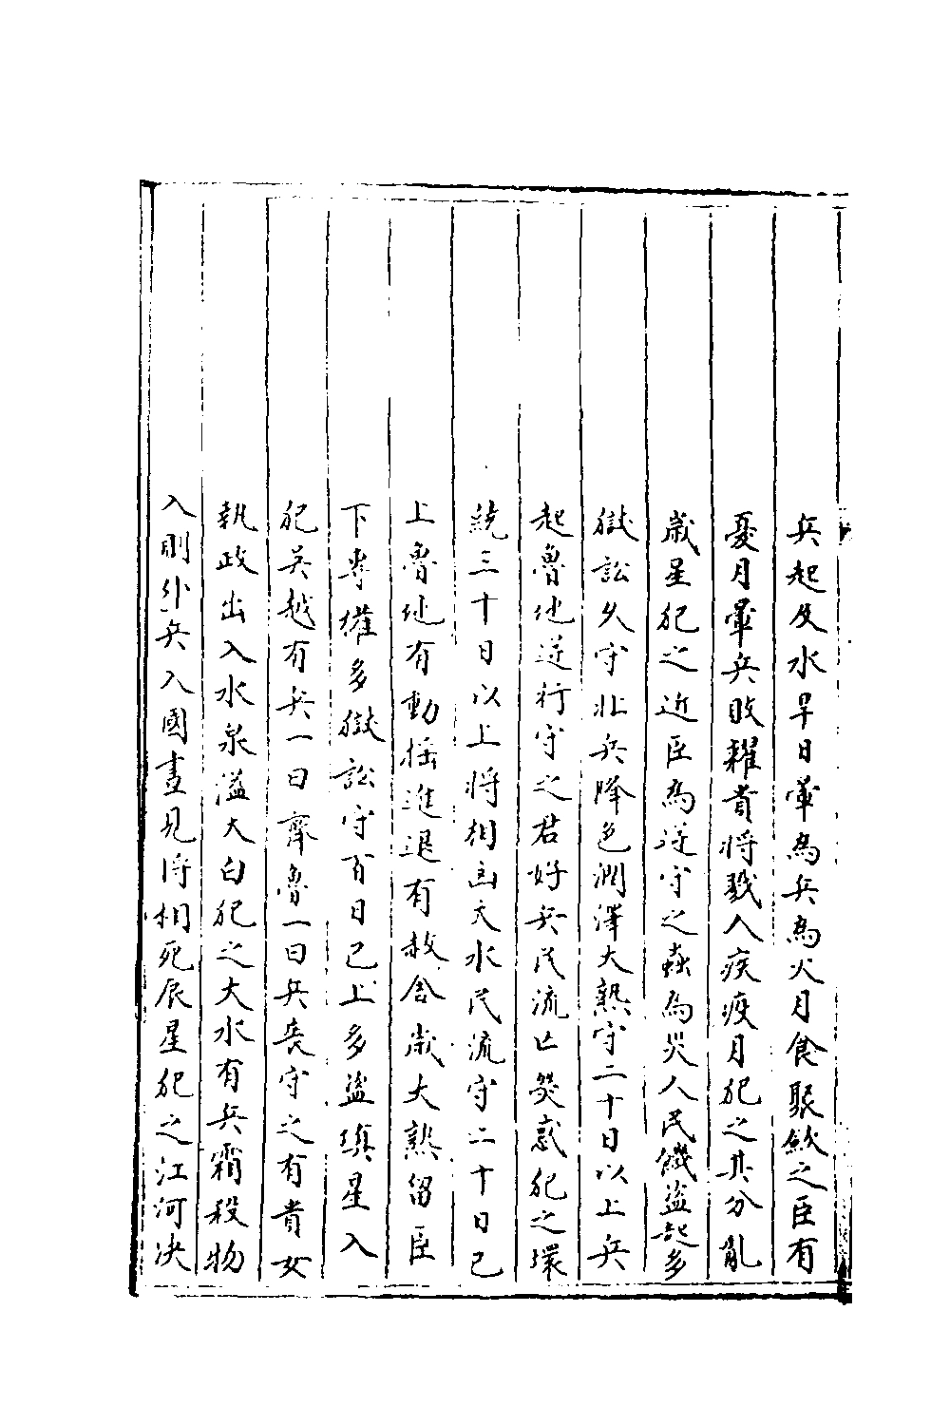 兵起及水旱日暈為兵為火月食聚歛之臣有
憂月暈兵敗糴貴將戮人疾疫月犯之其分亂
歲星犯之近臣為逆守之蟲為災人民饑盜起多
獄訟久守北兵降色潤澤大熟守二十日以上兵
起魯地逆行守之君好兵民流亡熒惑犯之環
繞三十日以上將相凶大水民流守二十日已
上魯地有動搖進退有赦舍歲大熟留臣
下專權多獄訟守百日已上多盜填星入
犯吴越有兵一曰齊魯一曰兵喪守之有貴女
執政出入水泉溢太白犯之大水有兵霜殺物
入則外兵入國晝見將相死辰星犯之江河决